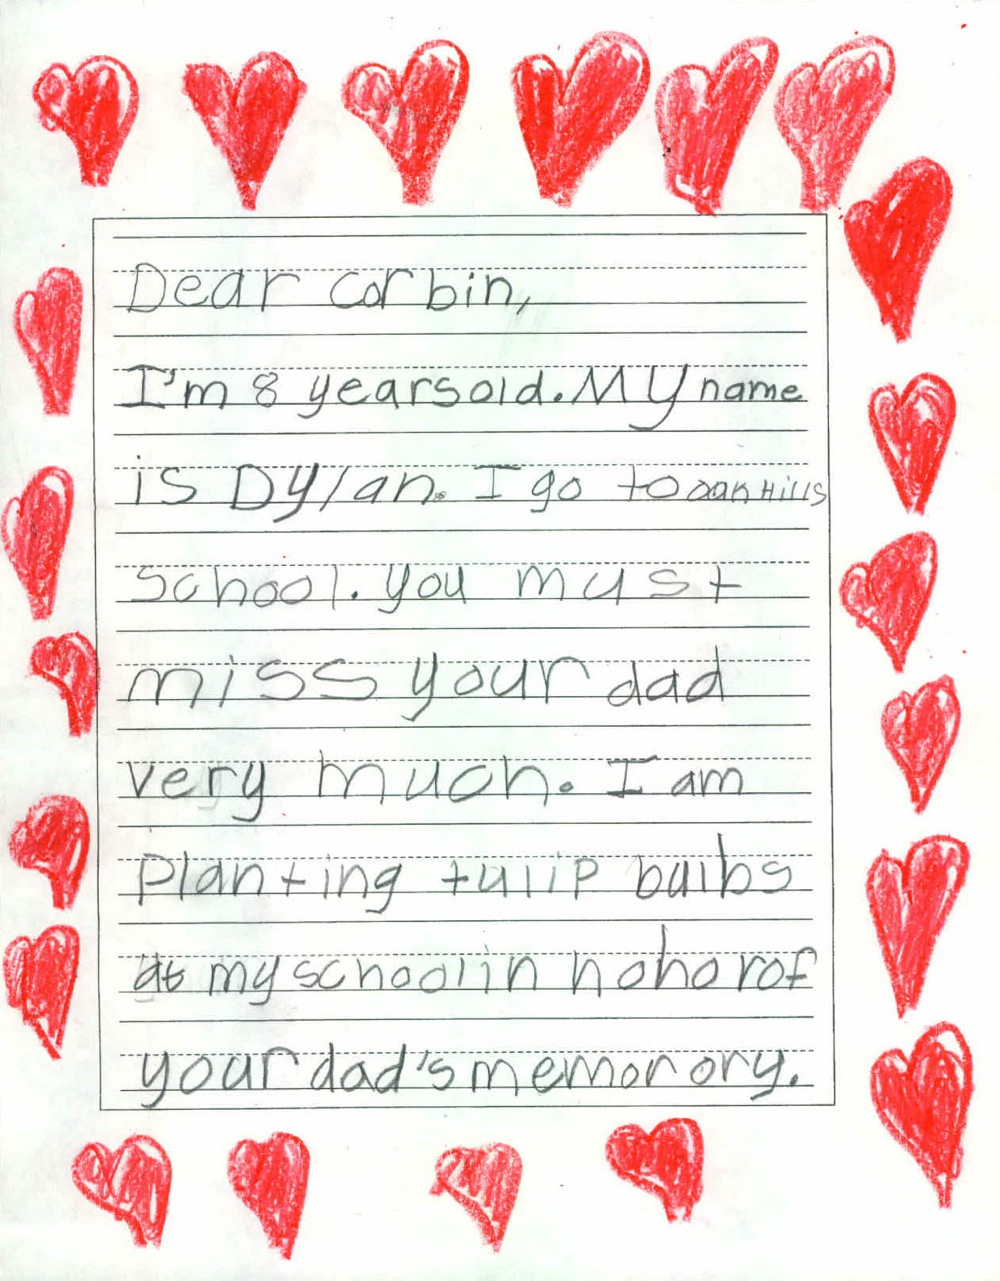 Dear Corbin,
I'm 8 years old. My name
is Dylan. I go to oak Hills
School. you must
miss your dad
very much. I am
Planting tulip bulbs
at my school in honor of
your dad's memorory.